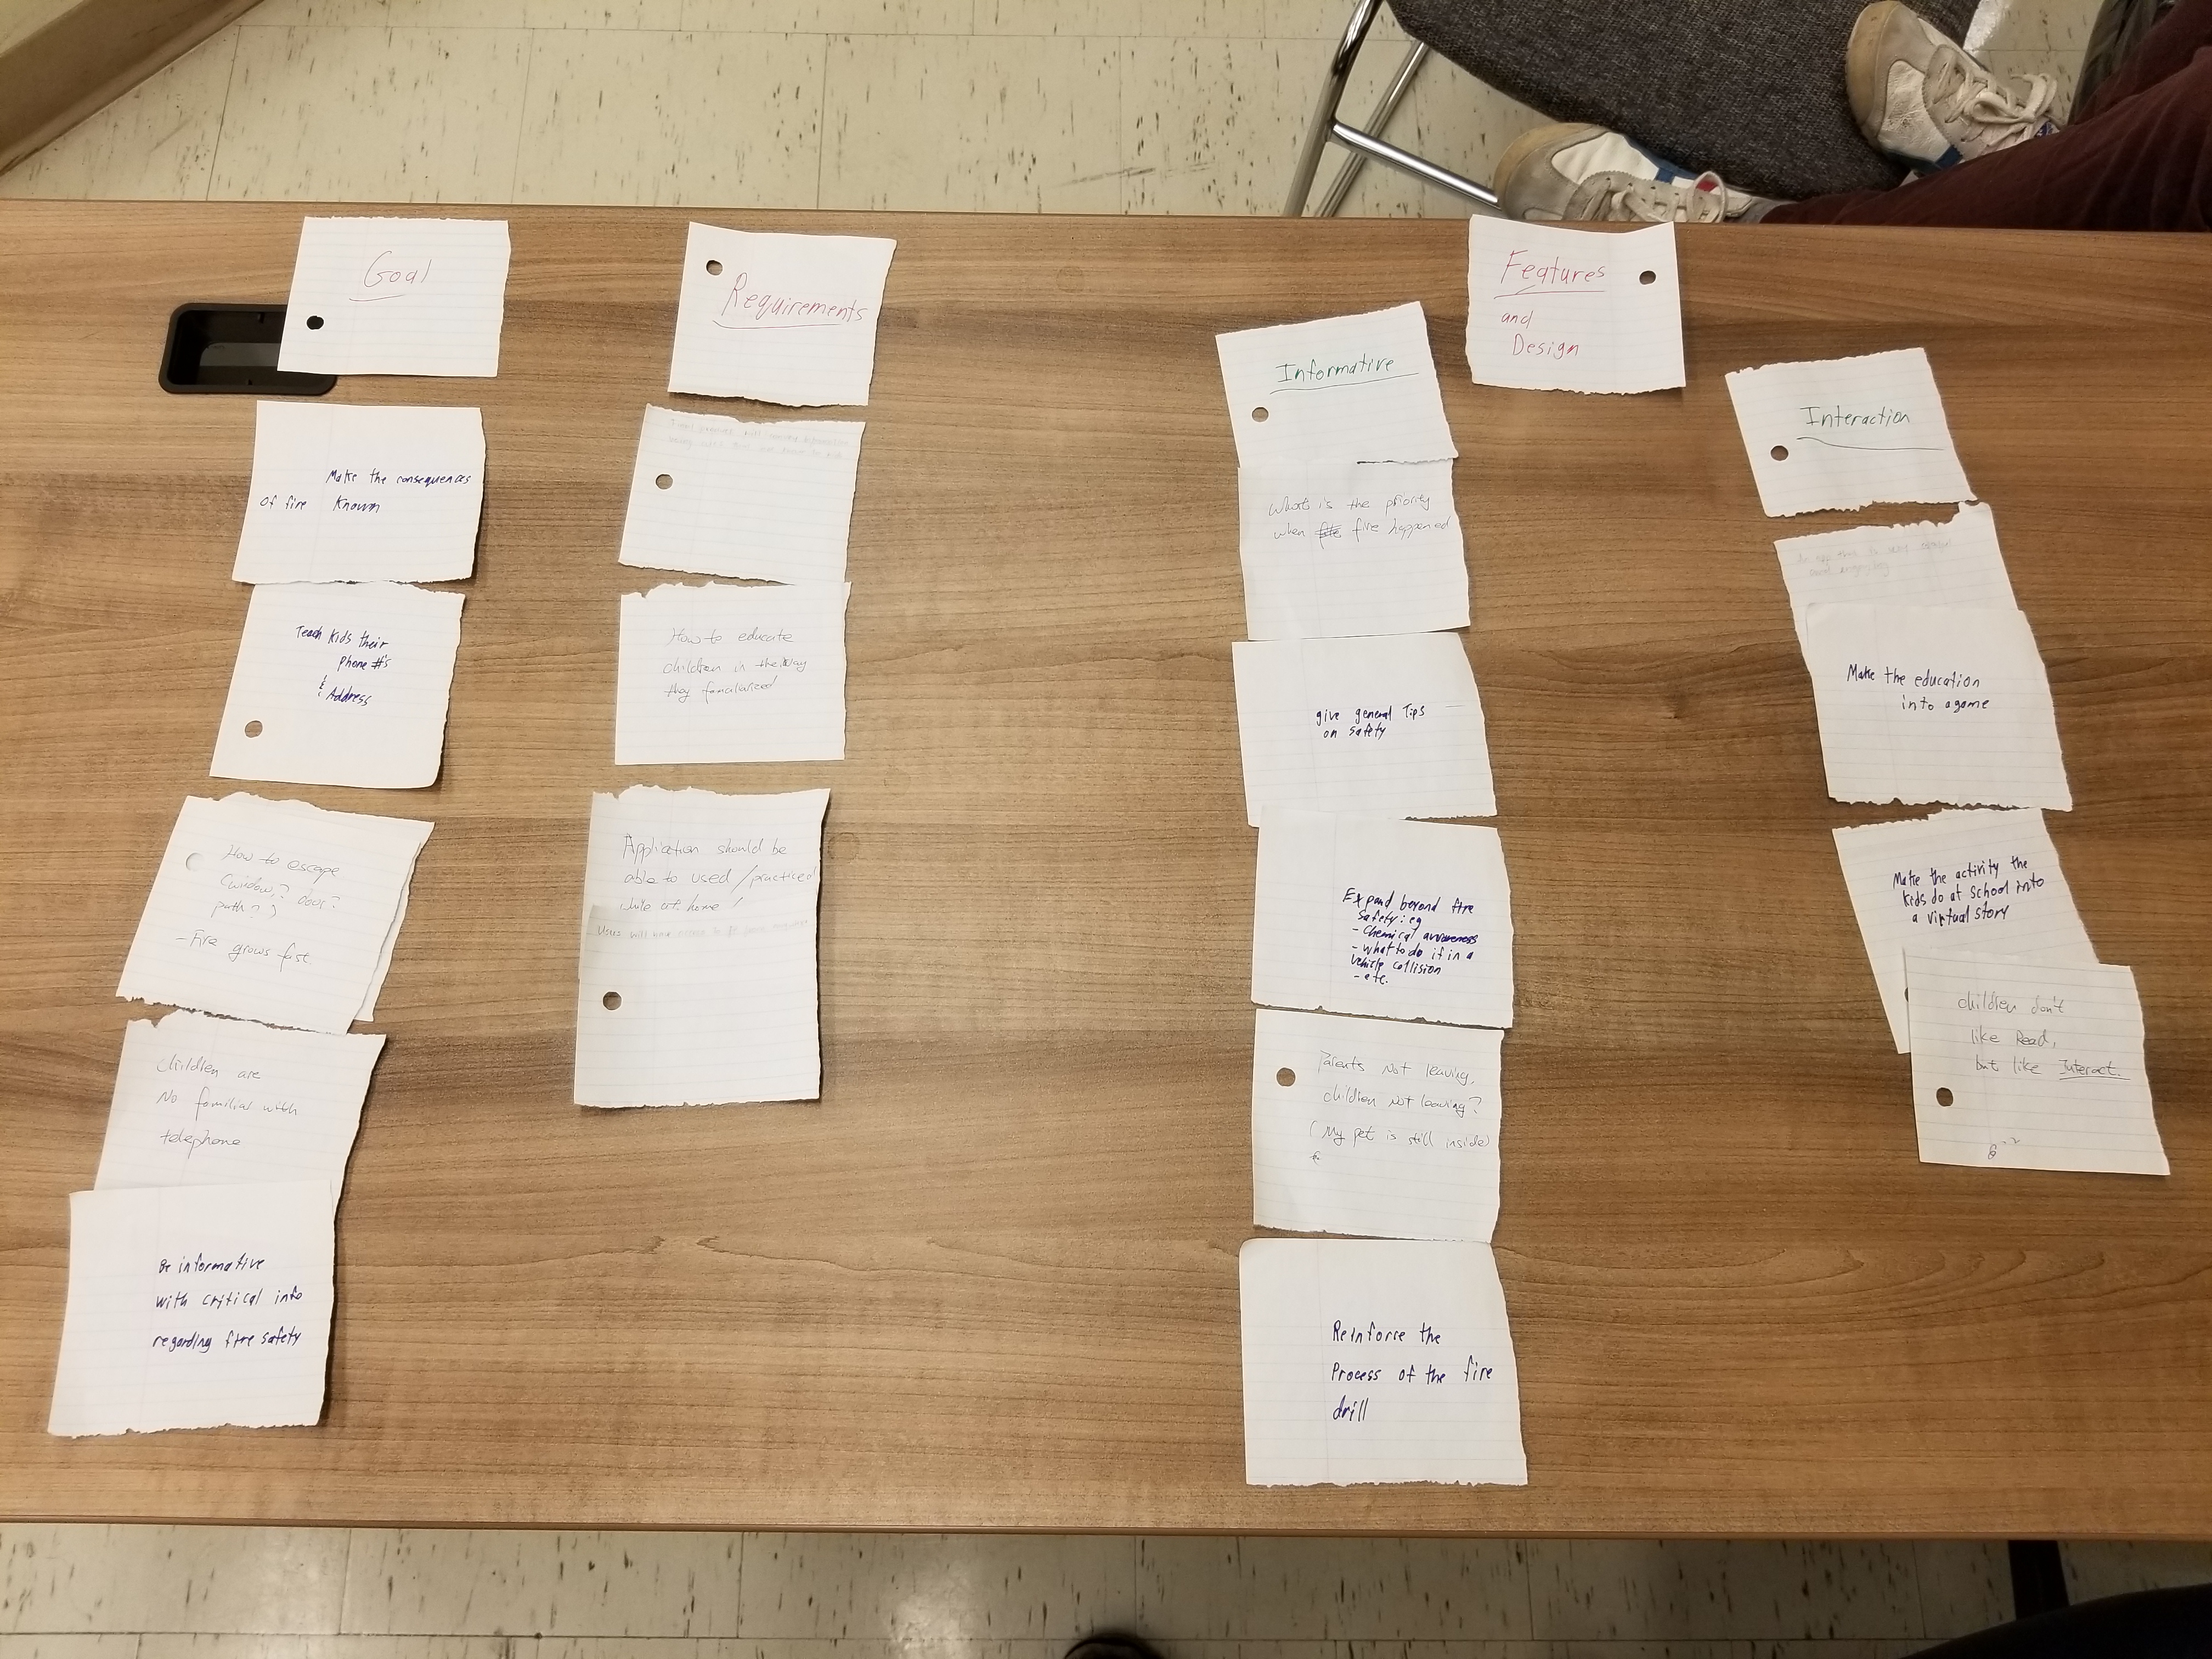 Goal
Make the consequences
of fire known
Teach kids their
phone #'s
& Address
How to escape
path??
door?
- Fire grows fast
children are
No familiar with
telephone
Be informative
with critical info
regarding fire safety
Requirements
How to educate
children in the way
they familiarized
Application should be
able to used / practiced
while at home!
Users will have
Features
and
Design
Informative
What's is the priority
when fire happened
give general Tips
on safety
Expand beyond fire
safety eg
- Chemical awareness
- What to do if in a
vehicle collision
- etc.
Parents not leaving,
children not leaving?
(My pet is still inside)
Reinforce the
Process of the fire
drill
Interaction
Make the education
into a game
Make the activity the
kids do at school into
a virtual story
children don't
like Read,
but like Interact.